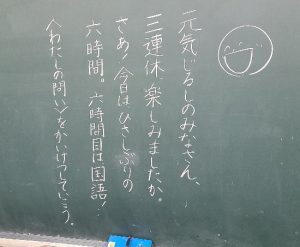 元気じるしのみなさん、
三連休、楽しみましたか。
さあ！今日はひさしぶりの
六時間。六時間目は国語！
〈わたしの問い〉をかいけつしていこう。